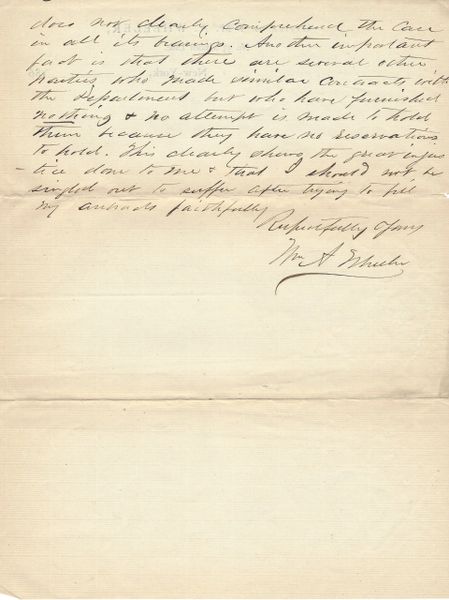 does not clearly comprehend the case
in all its bearings. Another important
fact is that there are several other
parties who made similar contracts with
the Department but who have furnished
nothing & no attempt is made to hold
them because they have no reservations
to hold. This clearly shows the great injus
-tice done to me & that I should not be
singled out to suffer after trying to fill
my contracts faithfully
Respectfully Yours
Wm A Wheeler